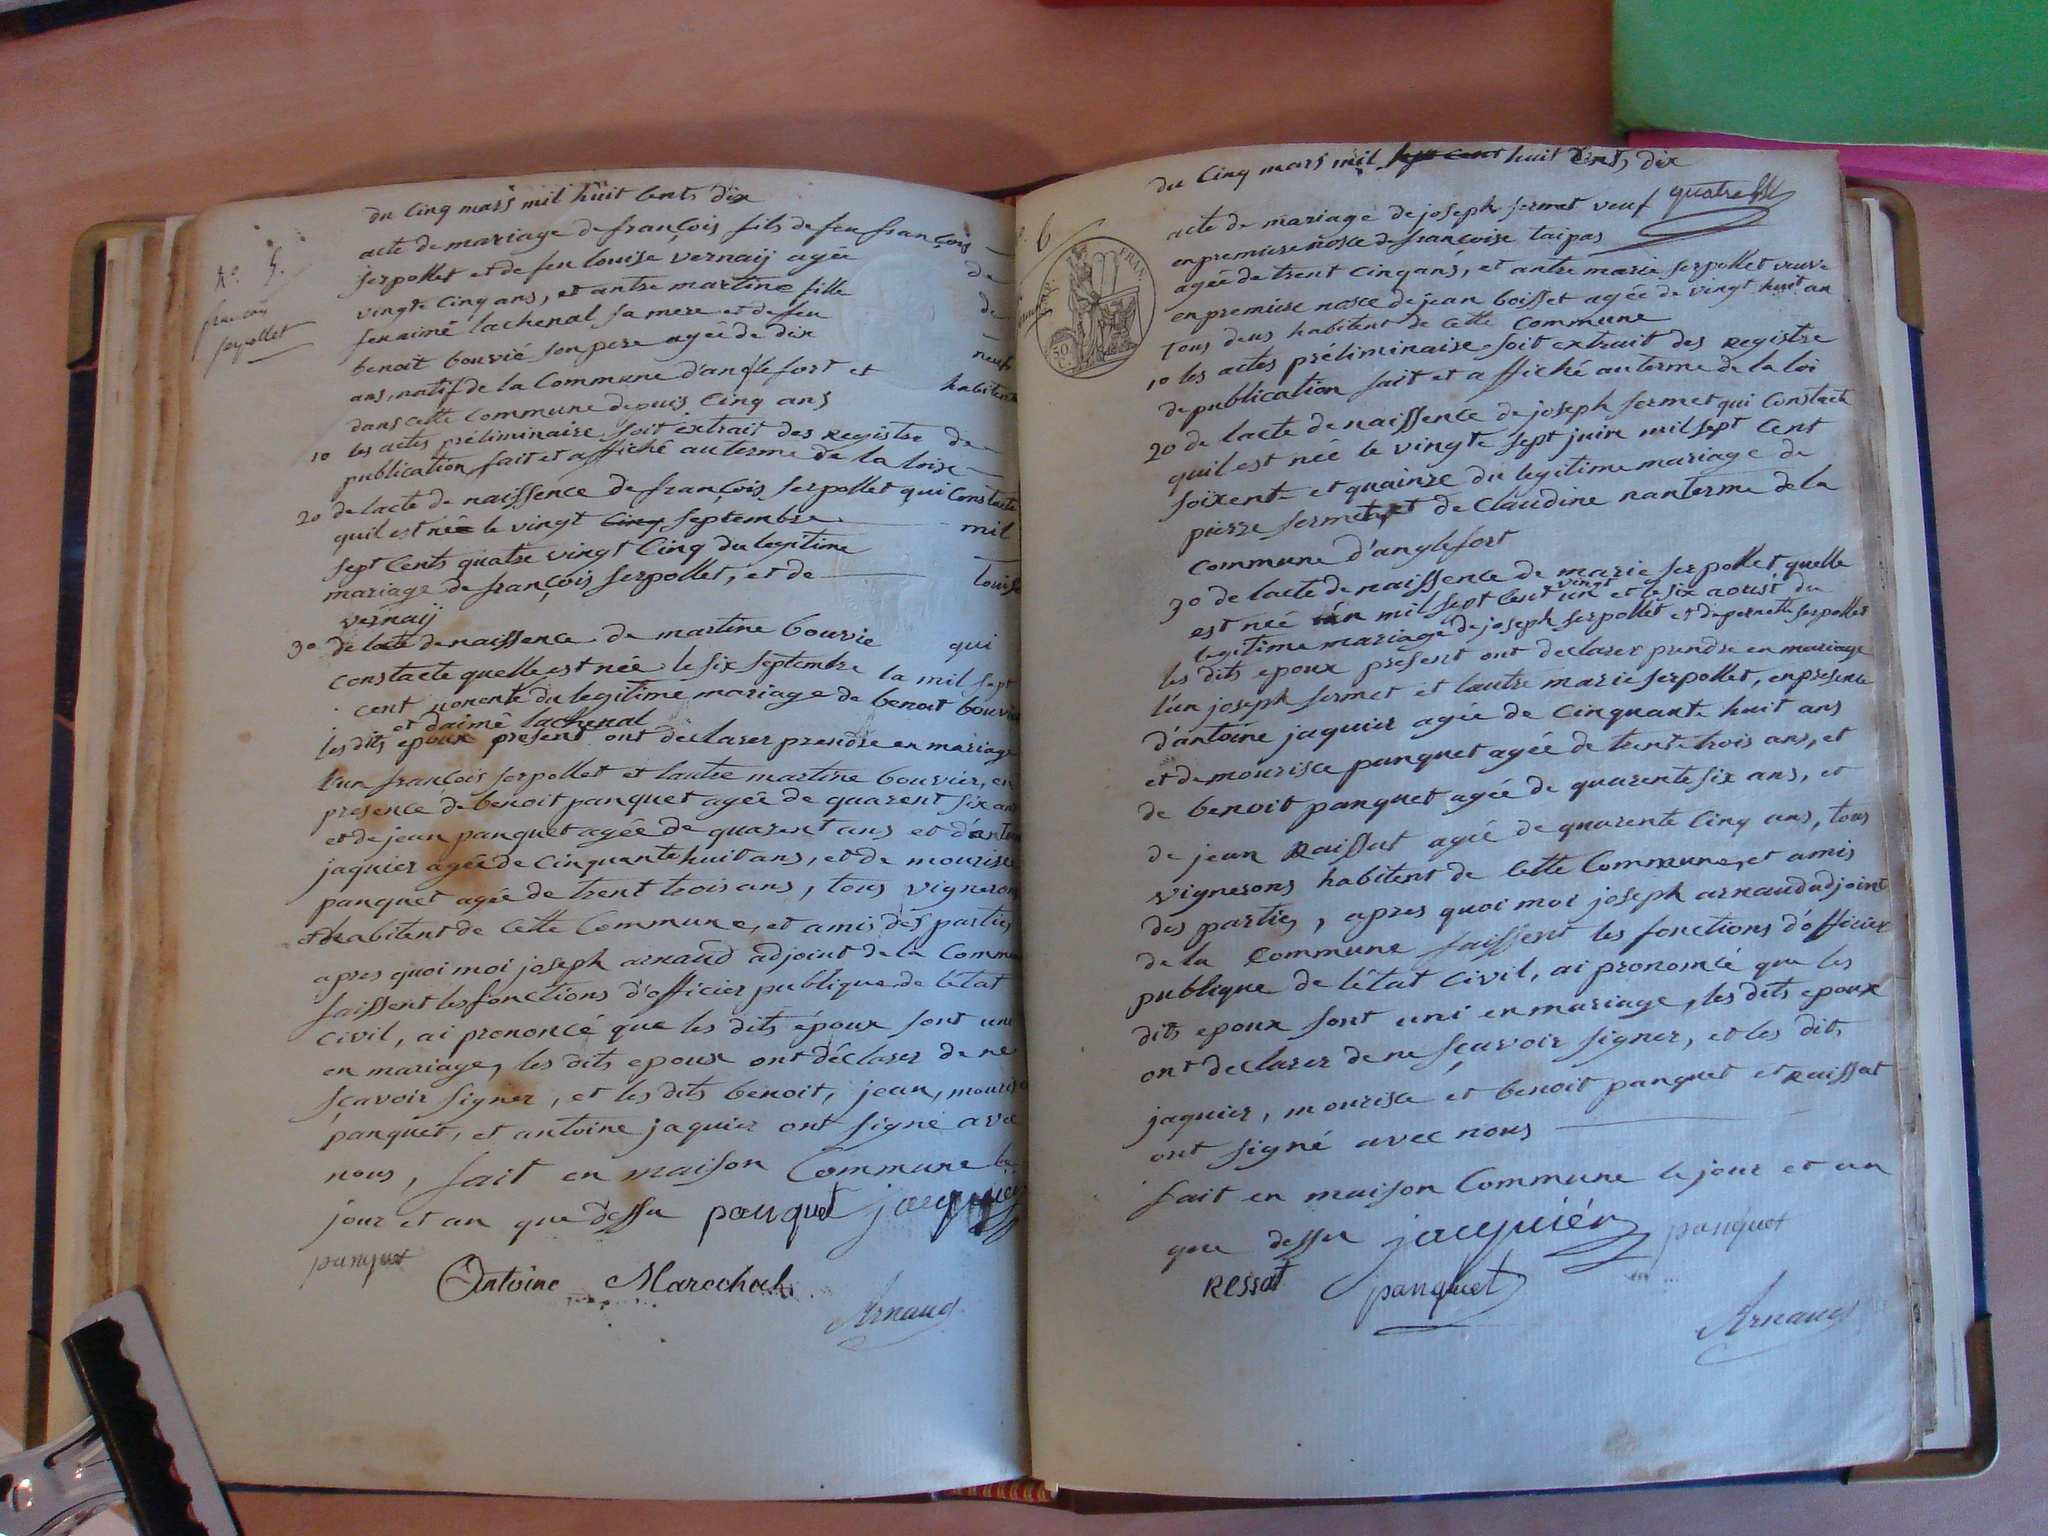 du Cinq mars mil huit Cents dix
N° 5.
françois
serpollet
acte de mariage de françois fils de feu françois
serpollet et de feu louise vernaij agée de
vingte Cinq ans, et antre martine fille de
feu aimé lachenal sa mere et de feu
benoit bouvié son pere agée de dix neuf
ans, natif de la Commune d'anglefort et habitent
dans cette Commune depuis Cinq ans
1o les actes préliminaire soit extrait des Registre de
publication fait et affiché au terme de la loix
2o de lacte de naissence de françois serpollet qui Constacte
quil est née le vingt Cinq septembre mil
sept Cents quatre vingt Cinq du legitime
mariage de françois serpollet, et de louise
vernaij
3o de lacte de naissence de martine bouvie qui
constacte quelle est née le six septembre la mil sept
cent nonente du legitime mariage de benoit bouvier
et daimé lachenal
les dits epoux présent ont declarer prendre en mariage
l'un françois serpollet et lautre martine bouvier, en
présence de benoit panquet agée de quarent six ans
et de jean panquet agée de quarent ans et d'antoine
jaquier agée de Cinquante huit ans, et de mourise
panquet agée de trent trois ans, tous vignerons
et habitent de Cette Commune, et amis des parties
apres quoi moi joseph arnaud adjoint de la Commune
faissent les fonctions d'officier publique de l'état
Civil, ai prononcé que les dits époux sont uni
en mariage, les dits epoux ont déclarer de ne
sçavoir signer, et les dits benoit, jean, mourise
panquet, et antoine jaquier ont signé avec
nous, fait en maison Commune le
jour et an que dessu panquet jacquier
panquet
Antoine Marechal
Arnaud
du Cinq mars mil sept cent huit Cents dix
6
acte de mariage de joseph fermet veuf
en premiere nosce de françoise taipas
agée de trent Cinq ans, et antre marie serpollet veuve
en premiere nosce de jean boisset agée de vingt huit an
tous deus habitent de Cette Commune
FRAN
50
1o les actes préliminaire soit extrait des Registre
de publication fait et affiché au terme de la loi
2o de lacte de naissence de joseph fermet qui Constacte
quil est née le vingte sept juin mil sept Cent
soixente et quainze du legitime mariage de
pierre fermet, et de Claudine nanterme de la
Commune d'anglefort
3o de lacte de naissence de marie serpollet quelle
est née en mil sept Cent vingt un et le six aoust du
legitime mariage de joseph serpollet et de pernette serpollet
les dits epoux présent ont declarer prendre en mariage
l'un joseph fermet et lautre marie serpollet, en présence
d'antoine jaquier agée de Cinquante huit ans
et de mourise panquet agée de trente trois ans, et
de benoit panquet agée de quarente six ans, et
de jean Raissat agée de quarente Cinq ans, tous
vignerons habitent de Cette Commune, et amis
des parties, apres quoi moi joseph arnaud adjoint
de la Commune faissent les fonctions d'officier
publique de l'état Civil, ai prononcé que les
dits epoux sont uni en mariage, les dits epoux
ont declarer de ne sçavoir signer, et les dits
jaquier, mourise et benoit panquet et Raissat
ont signé avec nous
fait en maison Commune le jour et an
que dessu jacquiér panquet
Ressat panquet
Arnaud